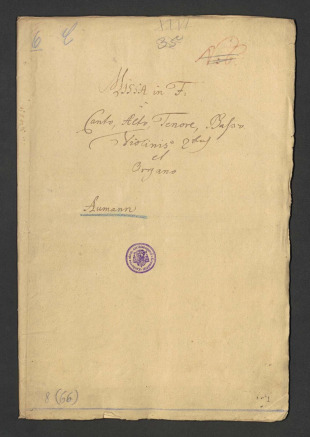 35
Missa in F.
à
Canto, Alto, Tenore, Basso
Violinis 2bus
et
Organo
Aumann
8 (66)